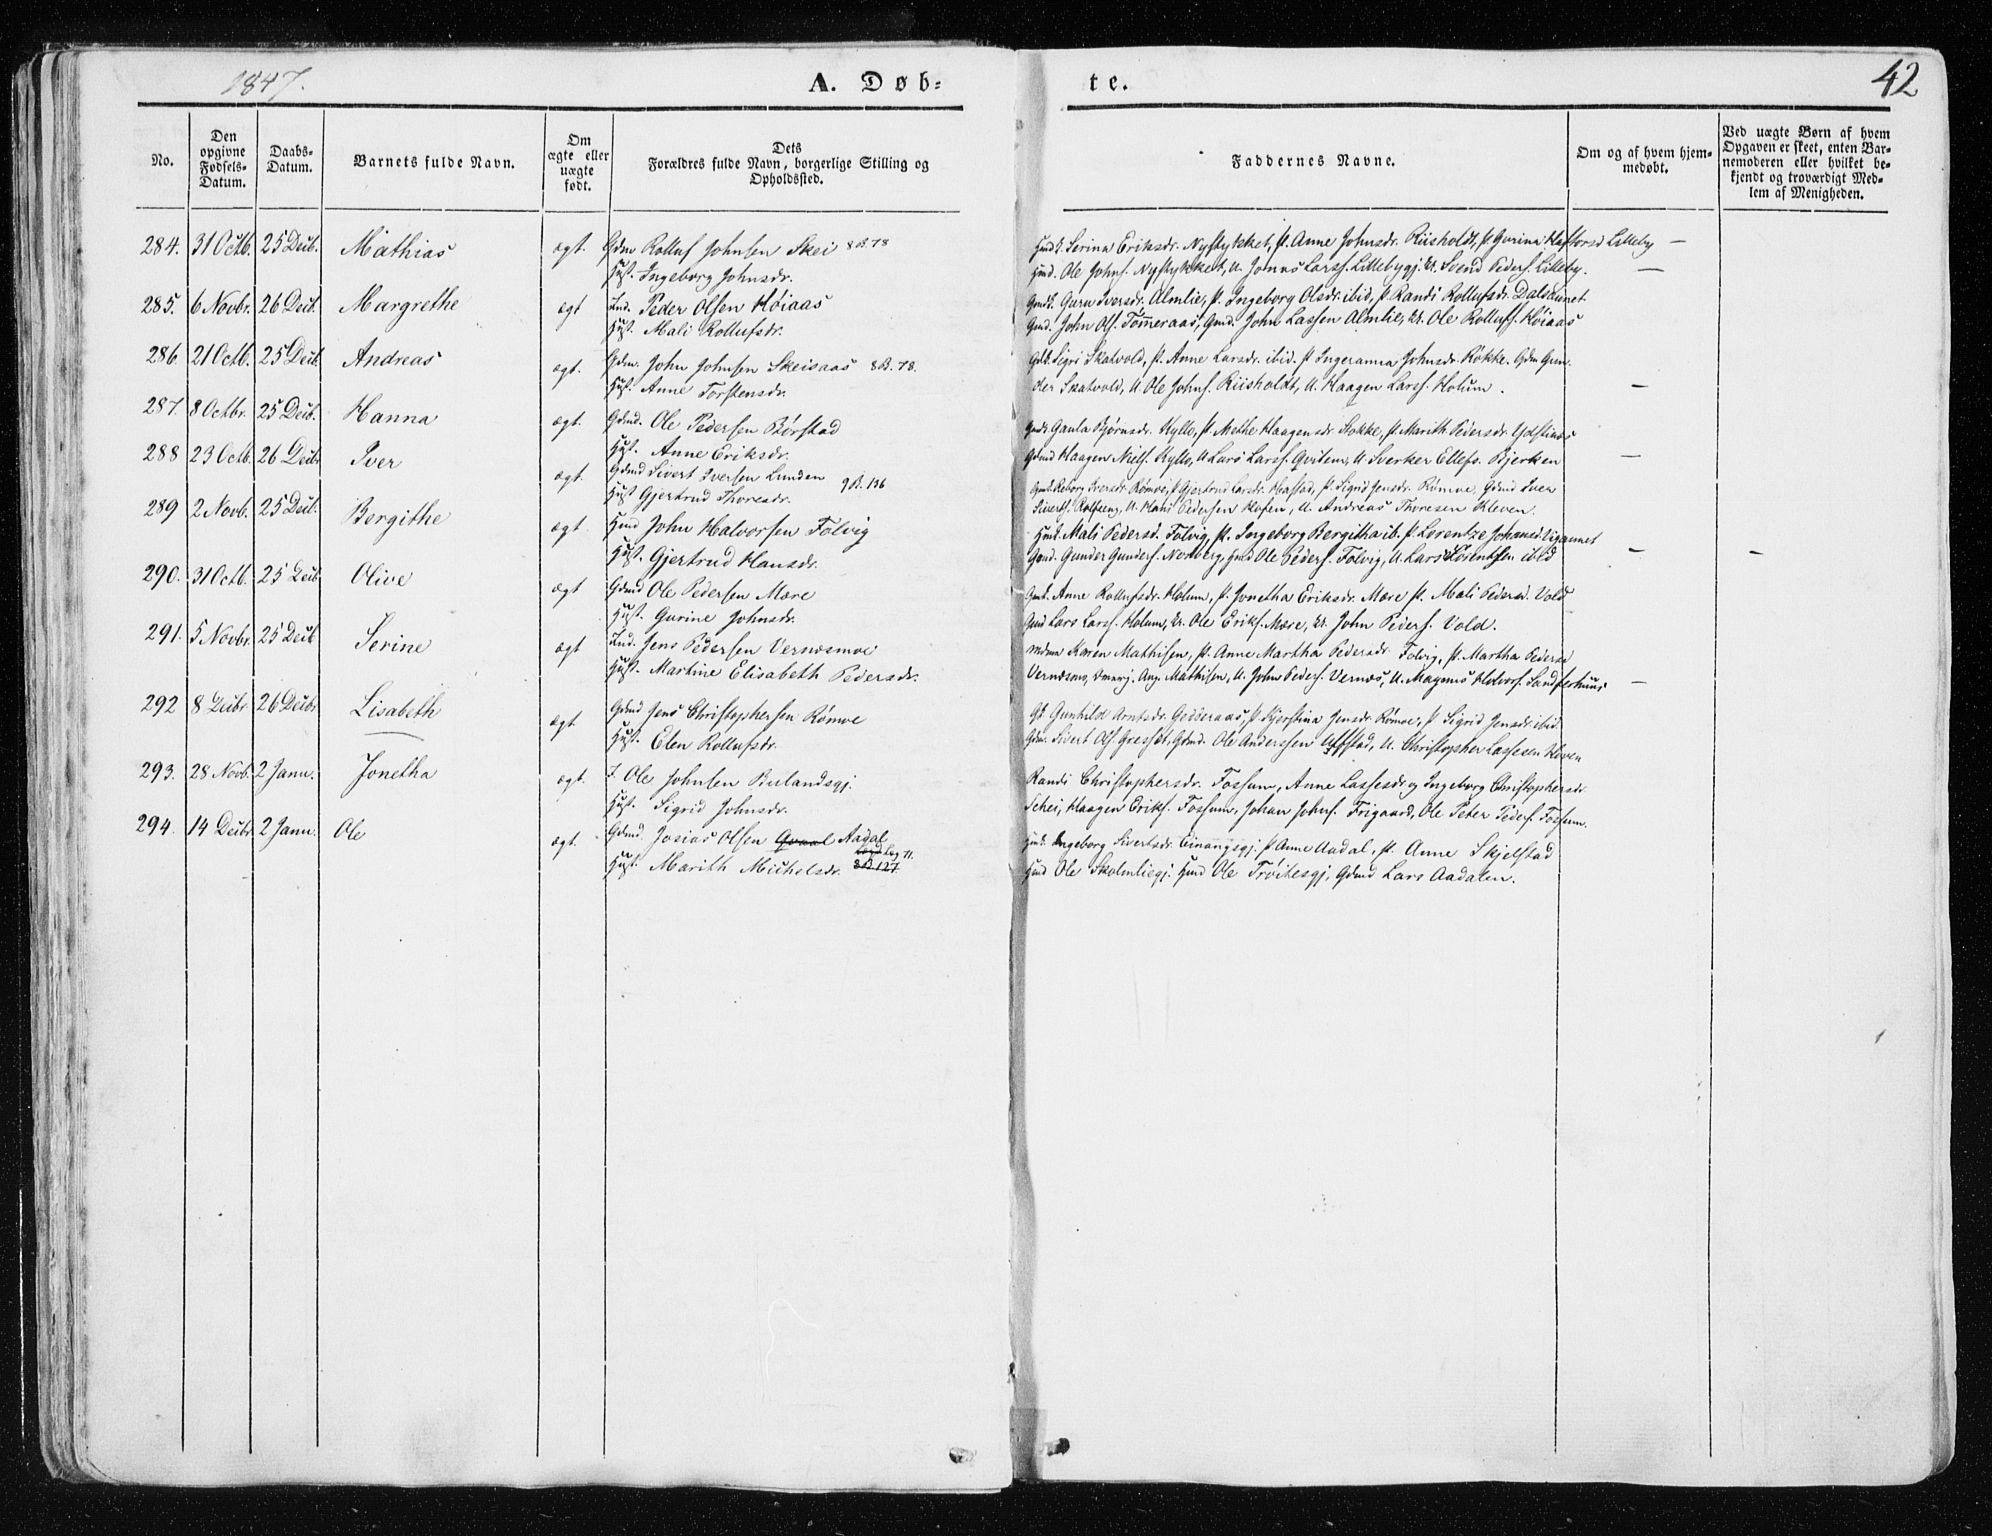 1847.
A. Døb-
te.
42
No.
Den opgivne Fødsels-Datum.
Daabs-Datum.
Barnets fulde Navn.
Om ægte eller uægte født.
Dets Forældres fulde Navn, borgerlige Stilling og Opholdssted.
Faddernes Navne.
Om og af hvem hjem-medøbt.
Ved uægte Børn af hvem Opgaven er skeet, enten Bar-nemoderen eller hvilket be-kjendt og troværdigt Med-lem af Menigheden.
284. 31 Octb. 25 Decb. Mathias ægt. Gdm Rolluf Johnsen Skei 8 B. 78
Hust. Ingeborg Johnsdr.
Serina Eriksdr. Nystykket, p. Anne Johnsdr. Riisholdt, p. Gurina Haftorsd Lilleby —
Ole Johns. Nystykket, U. Jonas Larss. Lillebygj. U. Svend Peders. Lilleby. —
285. 6 Novbr. 26 Decb. Margrethe ægt Ind. Peder Olsen Høiaas
Hust. Mali Rollufsdr.
Guru Iversdr. Almlie, p. Ingeborg Olsdr. ibid, p. Randi Rollufsdr. Dalsaunet
Gmd. John Ols. Tømeraas, Gmd. John Lassen Almlie, U. Ole Rollufs. Høiaas
286. 21 Octb. 25 Decb. Andreas ægt. Gdm. John Johnsen Skeisaas 8 B. 78.
Hust. Anne Torstensdr.
Sigri Skatvold, p. Anne Larsdr. ibid. p Ingeranna Johnsdr. Røkke. Gdm Gun-
der Skatvold, U Ole Johns. Riisholdt, U. Haagen Larss. Holum. —
287. 8 Octbr. 25 Decb. Hanna ægt. Gdmd. Ole Pedersen Børstad
Hust. Anne Eriksdr.
Ganla Bjørnsdr. Hyllo, p. Methe Haagensdr Stokke, p. Marith Pedersdr. Ydstines
Gdmd Haagen Niels. Hyllo, U Lars Larss. Qvitem, U. Sverker Ellefs. Bjerken —
288 23 Octb. 26 Decbr Iver ægt. Gdmd Sivert Iversen Lunden 9 B. 136
Hust Gjertrud Thoresdr.
Iversdr. Rømoe, p Gjertrud Larsdr. Hastad, p. Sigrid Jensdr. Rømoe, Gdmd Iver
Siverts. Rolseng, U. Hans Pedersen Hofen, U. Andreas Thoresen Kleven.
289 2 Novb. 25 Decb. Bergithe ægt. Hmd John Halvorsen Folvig
Hust. Gjertrud Hansdr.
Mali Pedersd. Folvig, p. Ingeborg Bergitha ib. p. Lorentze Johansd. Viganmet
Gmd. Gunder Gunders. Norberg, Hmd Ole Peders. Folvig, U. Lars Lorentsen ibid — —
290. 31 Octb. 25 Decb Olive ægt Gdmd Ole Pedersen Mære
Hust. Gurine Johnsdr.
Anne Rollufsdr. Holum, p. Jonetha Eriksdr. Mære p. Mali Pedersd. Vold
Gmd Lars Larss. Holum, U. Ole Eriks. Mære, U. John Peders. Vold.
291. 5 Novbr. 25 Decb Serine ægt Ind. Jens Pedersen Vernæsmoe
Hust. Martine Elisabeth Pedersdr.
Karen Mathisen, p. Anne Martha Pedersdr. Folvig, p. Martha Pedersd
Vernæsmo, Aug. Mathisen, U. John Peders. Vernæs, U. Magnus Halvors. Sandferhuus —
292 8 Decbr. 26 Decbr Lisabeth ægt Gdmd Jens Christophersen Rømoe
Hust. Elen Rollufsdr.
Gunhild Arntsdr. Gedderaas, p. Kjerstina Jensdr. Rømoe, p Sigrid Jensdr. ibid.
Gdm. Sivert Ols Gresset, Gdmd. Ole Anderssen Uffstad, U. Christopher Lassesen Hoven
293. 28 Novb. 2 Janu. Jonetha ægt. I. Ole Johnsen Bulandsgj.
Hust. Sigrid Johnsdr.
Randi Christophersdr. Fossum, Anne Lassesdr og Ingeborg Christophersdr.
Schei, Haagen Eriks. Fossum, Johan Johns. Frigaard, Ole Peter Peders. Fossum.
294. 14 Decbr 2 Janu. Ole ægt. Gdmd. Josias Olsen Qvaal Aadal
Hust. Marith Michelsdr. 8 B 127 11.
Ingeborg Sivertsdr. Einangsgj. p Anne Aadal, p. Anne Skjelstad
Hmd Ole Skolmliegj. Hmd Ole Trøitesgj, Gdmd Lars Aadalen.